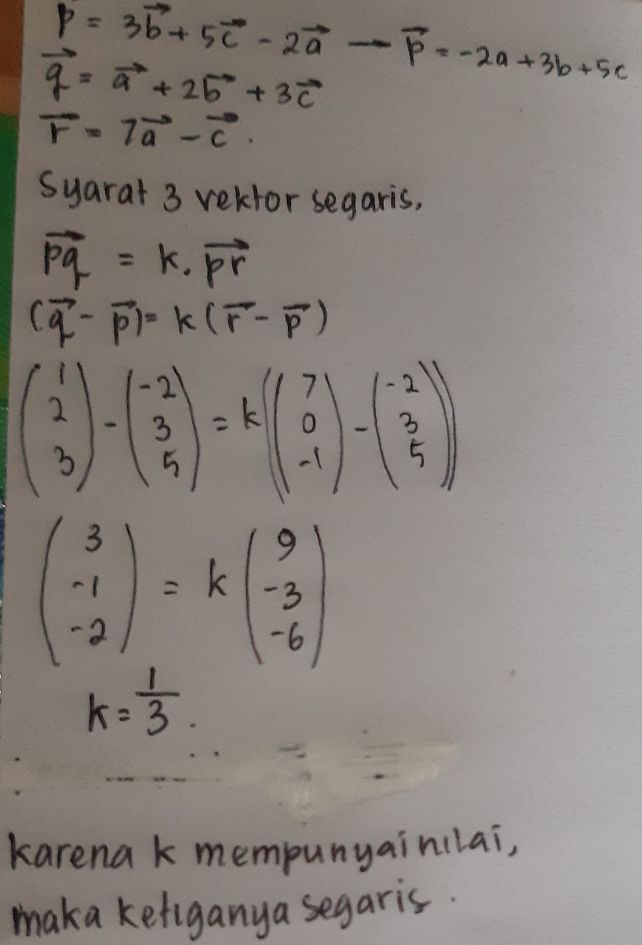 p = 3b⃗ + 5c⃗ - 2a⃗ → p⃗ = -2a + 3b + 5c
q⃗ = a⃗ + 2b⃗ + 3c⃗
r⃗ = 7a⃗ - c⃗.
Syarat 3 vektor segaris,
pq⃗ = k. pr⃗
(q⃗ - p⃗) = k (r⃗ - p⃗)
(1 2 3) - (-2 3 5) = k((7 0 -1) - (-2 3 5))
(3 -1 -2) = k (9 -3 -6)
k = 1/3.
karena k mempunyai nilai,
maka ketiganya segaris.